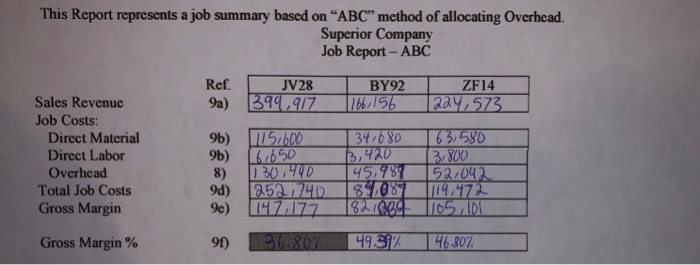 This Report represents a job summary based on “ABC” method of allocating Overhead.
Superior Company
Job Report – ABC
Ref. JV28 BY92 ZF14
Sales Revenue 9a) 399,917 166,156 224,573
Job Costs:
Direct Material 9b) 115,600 34,680 63,580
Direct Labor 9b) 6,650 3,420 3,800
Overhead 8) 130,490 45,987 52,092
Total Job Costs 9d) 252,740 84,087 119,472
Gross Margin 9e) 147,177 105,101
Gross Margin % 9f) 36.80% 49.39% 46.80%